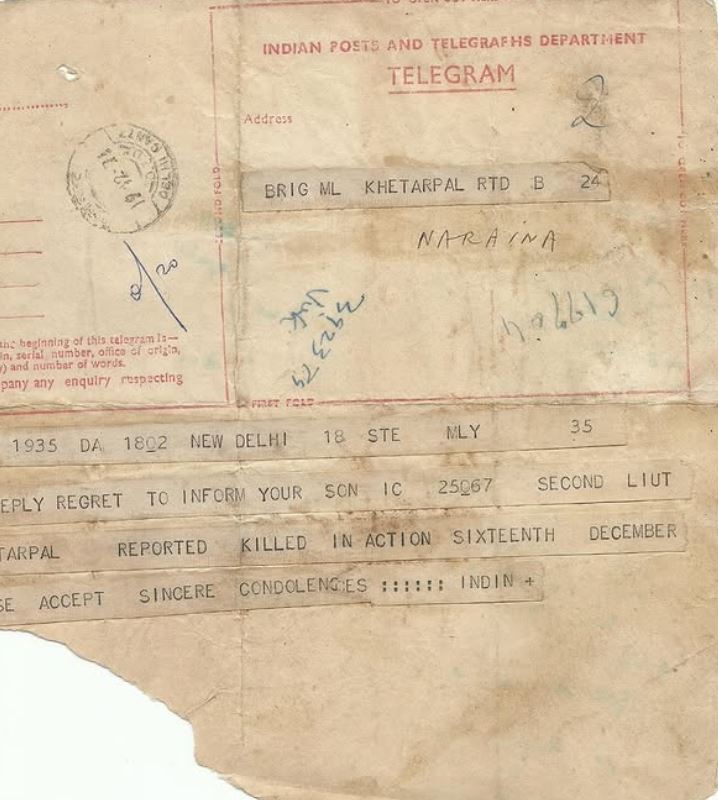 INDIAN POSTS AND TELEGRAPHS DEPARTMENT
TELEGRAM
Address
2
BRIG ML KHETARPAL RTD B 24
NARAINA
DELHI CANTT
the beginning of this telegram is—
in, serial number, office of origin,
y) and number of words.
pany any enquiry respecting
FIRST FOLD
1935 DA 1802 NEW DELHI 18 STE MLY 35
EPLY REGRET TO INFORM YOUR SON IC 25067 SECOND LIUT
TARPAL REPORTED KILLED IN ACTION SIXTEENTH DECEMBER
SE ACCEPT SINCERE CONDOLENCES :::::: INDIN +